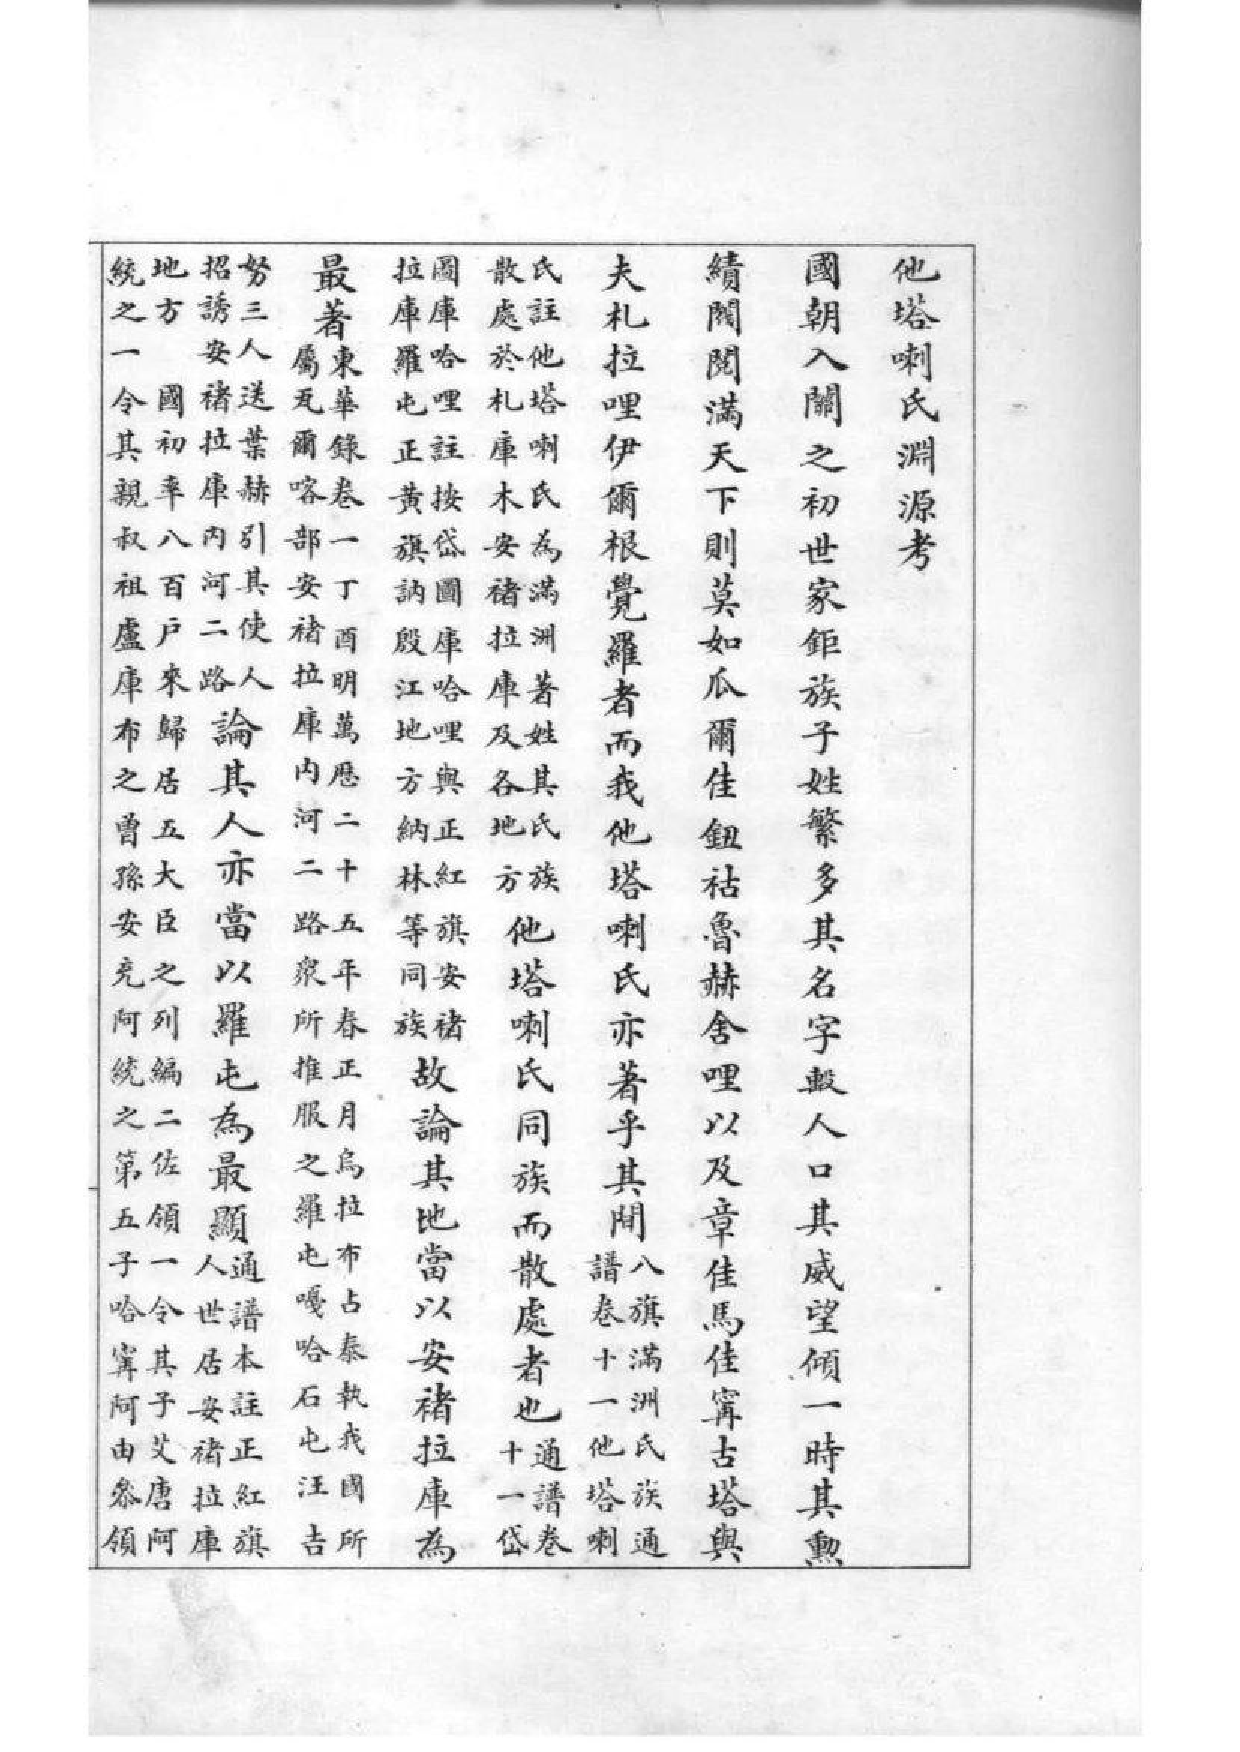 他塔喇氏淵源考
國朝入關之初世家鉅族子姓繁多其名字轂人口其威望傾一時其勲
績閥閱滿天下則莫如瓜爾佳鈕祜魯赫舍哩以及章佳馬佳甯古塔與
夫札拉哩伊爾根覺羅者而我他塔喇氏亦著乎其間
八旗滿洲氏族通
譜卷十一他塔喇
氏註他塔喇氏為滿洲著姓其氏族
散處於札庫木安褚拉庫及各地方
他塔喇氏同族而散處者也
通譜卷
十一岱
圖庫哈哩註按岱圖庫哈哩與正紅旗安褚
拉庫羅屯正黃旗訥殷江地方納林等同族
故論其地當以安褚拉庫為
最著
東華錄卷一丁酉明萬歷二十五年春正月烏拉布占泰執我國所
屬瓦爾喀部安褚拉庫內河二路衆所推服之羅屯嘎哈石屯汪吉
努三人送葉赫引其使人
招誘安褚拉庫內河二路
論其人亦當以羅屯為最顯
通譜本註正紅旗
人世居安褚拉庫
地方 國初率八百戶來歸居五大臣之列編二佐領一令其子艾唐阿
統之一令其親叔祖盧庫布之曾孫安充阿統之第五子哈甯阿由叅領